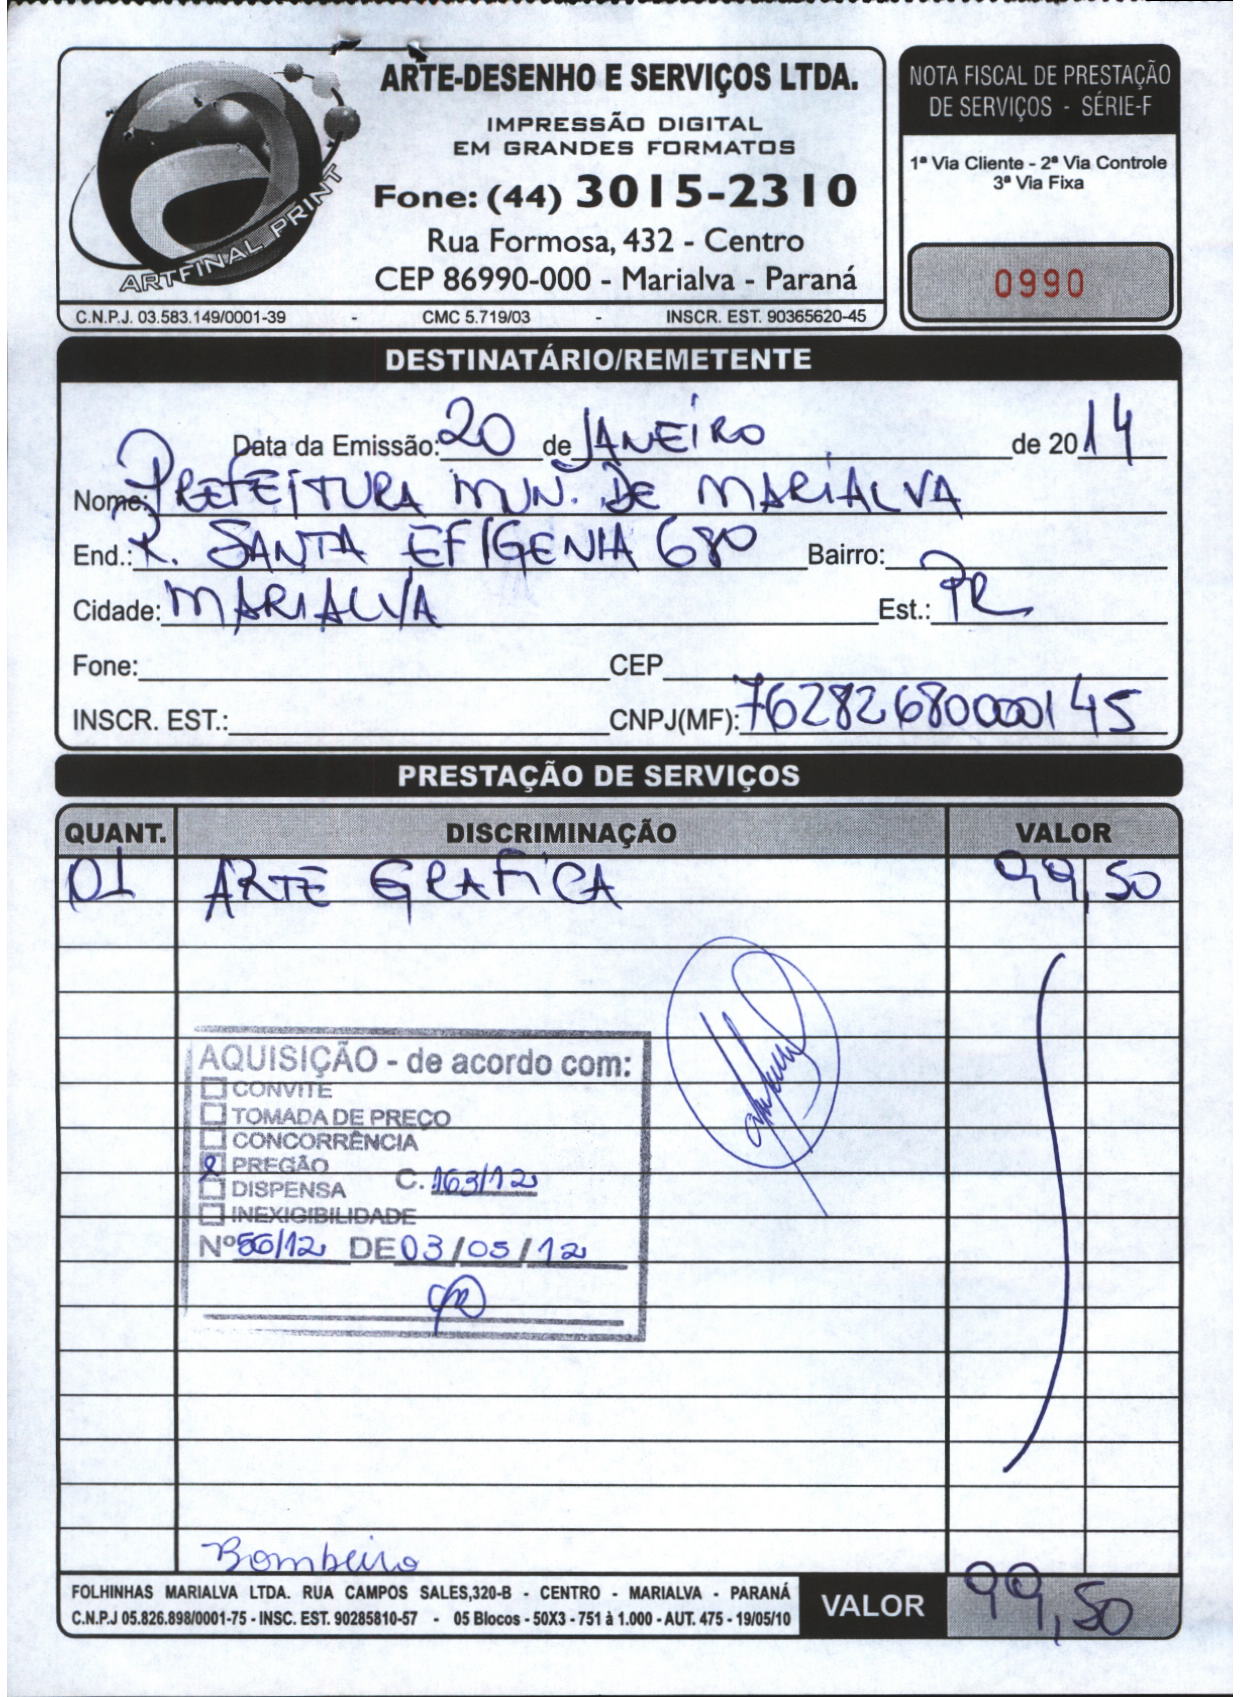 ARTE-DESENHO E SERVIÇOS LTDA.
IMPRESSÃO DIGITAL
EM GRANDES FORMATOS
Fone: (44) 3015-2310
Rua Formosa, 432 - Centro
CEP 86990-000 - Marialva - Paraná
ARTFINAL PRINT
C.N.P.J. 03.583.149/0001-39 - CMC 5.719/03 - INSCR. EST. 90365620-45
NOTA FISCAL DE PRESTAÇÃO
DE SERVIÇOS - SÉRIE-F
1ª Via Cliente - 2ª Via Controle
3ª Via Fixa
0990
DESTINATÁRIO/REMETENTE
Data da Emissão: 20 de JANEIRO de 2014
Nome: PREFEITURA MUN. DE MARIALVA
End.: R. SANTA EFIGENIA 680 Bairro:
Cidade: MARIALVA Est.: PR
Fone: CEP
INSCR. EST.: CNPJ(MF): 76282680000145
PRESTAÇÃO DE SERVIÇOS
QUANT. DISCRIMINAÇÃO VALOR
01 ARTE GRAFICA 99,50
AQUISIÇÃO - de acordo com:
CONVITE
TOMADA DE PREÇO
CONCORRÊNCIA
PREGÃO
DISPENSA C. 163/12
INEXIGIBILIDADE
Nº 56/12 DE 03/05/12
Bombeiro
FOLHINHAS MARIALVA LTDA. RUA CAMPOS SALES,320-B - CENTRO - MARIALVA - PARANÁ
C.N.P.J 05.826.898/0001-75 - INSC. EST. 90285810-57 - 05 Blocos - 50X3 - 751 à 1.000 - AUT. 475 - 19/05/10
VALOR 99,50